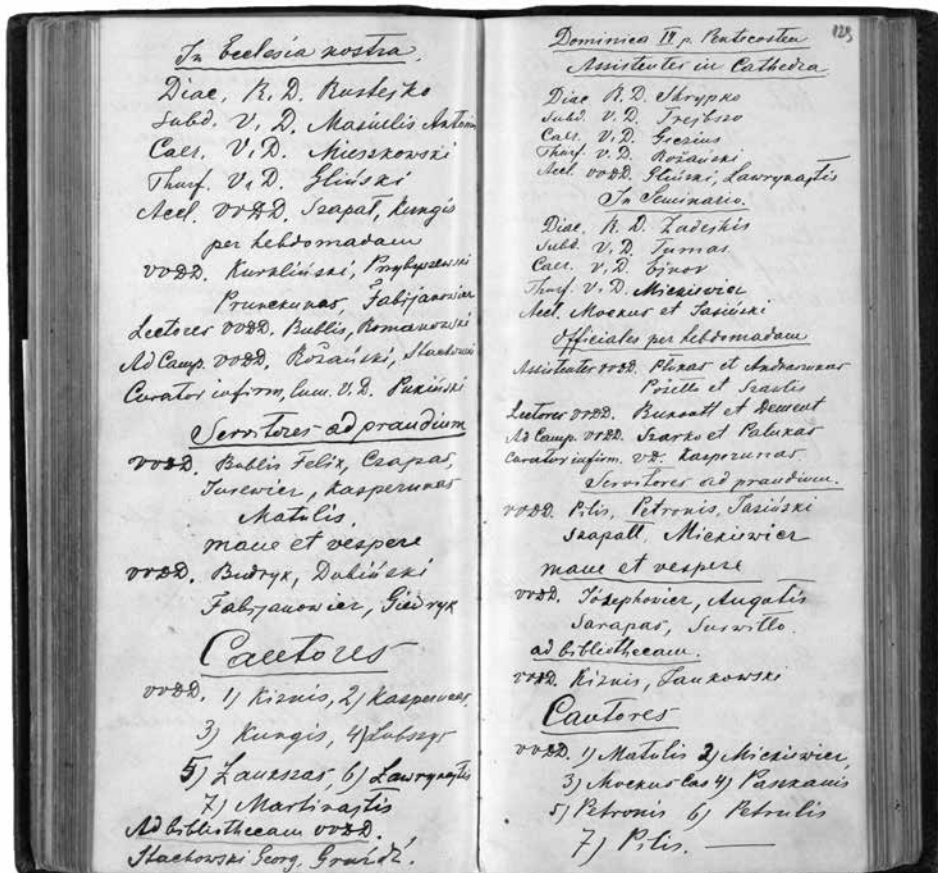 In Ecclesia nostra.
Diac. R. D. Rustejko
Subd. V. D. Masiulis Antonin
Caer. V. D. Mieszkowski
Thurf. V. D. Gliński
Accl. VVDD. Szapat, Kungis
per hebdomadam
VVDD. Kurkliński, Przybyszewski
Prunckunas, Fabrjanowicz
Lectores VVDD. Bublis, Romanowski
Ad Camp. VVDD. Rożański, Stankowski
Curator infirm, lum. V. D. Pukiński
Servitores ad prandium
VVDD. Bublis Felix, Czapas,
Jurewicz, Kasperunas
Matulis.
mane et vespere
VVDD. Budryk, Dubiński
Fabrjanowicz, Giedryk
Cantores
VVDD. 1) Kiznis, 2) Kasperunas,
3) Kungis, 4) Lubszys
5) Laukszas, 6) Lawrynajtis
7) Martinajtis
Ad bibliothecam VVDD.
Stachowski Georg,
129
Dominica IV p. Pentecosten
Assistentes in Cathedra
Diac. R. D. Skrypko
Subd. V. D. Trejbszo
Caer. V. D. Giezius
Thurf. V. D. Rożański
Accl. VVDD. Gliński, Lawrynajtis
In Seminario.
Diac. R. D. Zadejkis
Subd. V. D. Tumas
Caer. V. D.
Thurf. V. D. Mickiewicz
Accl. Mockus et Jasiński
Officiales per hebdomadam
Assistentes VVDD. Plukas et Andraszunas
Pożełło et Szawlis
Lectores VVDD. Bukontt et Dement
Ad Camp. VVDD. Szarko et Palukas
Curator infirm. VD. Kasperunas.
Servitores ad prandium.
VVDD. Pilis, Petronis, Jasiński
Szapatt, Mickiewicz
mane et vespere
VVDD. Józephowicz, Augatis
Sarapas, Surwiłło.
ad bibliothecam.
VVDD. Kiznis, Jankowski
Cantores
VVDD. 1) Matulis 2) Mickiewicz,
3) Mockus Cas 4) Paszkanis
5) Petronis 6) Petrulis
7) Pilis. —